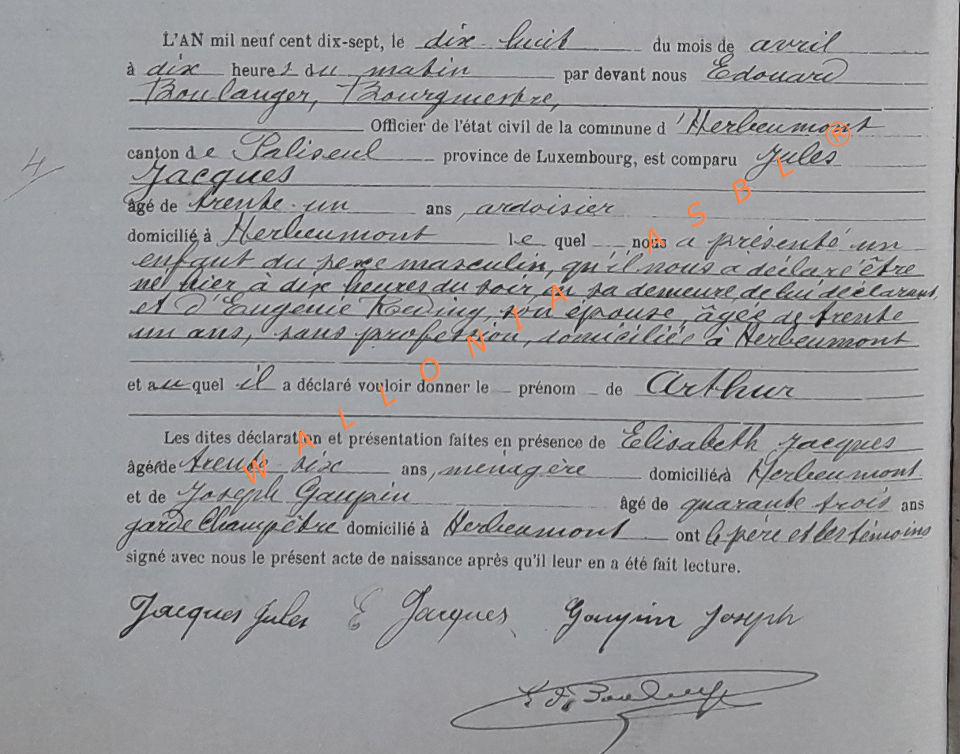 L'AN mil neuf cent dix-sept, le dix-huit du mois de avril
à dix heures du matin par devant nous Edouard
Boulanger, Bourgmestre,
Officier de l'état civil de la commune d'Herbeumont
4
canton de Paliseul province de Luxembourg, est comparu Jules
Jacques
âgé de trente-un ans, ardoisier
domicilié à Herbeumont lequel nous a présenté un
enfant du sexe masculin, qu'il nous a déclaré être
né hier à dix heures du soir en sa demeure, de lui déclarant,
et d'Eugénie Reding, son épouse, âgée de trente
un ans, sans profession, domiciliée à Herbeumont
et auquel il a déclaré vouloir donner le prénom de Arthur
Les dites déclaration et présentation faites en présence de Elisabeth Jacques
âgé de trente six ans, ménagère domicilié à Herbeumont
et de Joseph Goupin âgé de quarante trois ans
garde champêtre domicilié à Herbeumont ont le père et les témoins
signé avec nous le présent acte de naissance après qu'il leur en a été fait lecture.
Jacques Jules E Jacques Goupin Joseph
Ed. Boulanger
WALLONIA ASBL ®